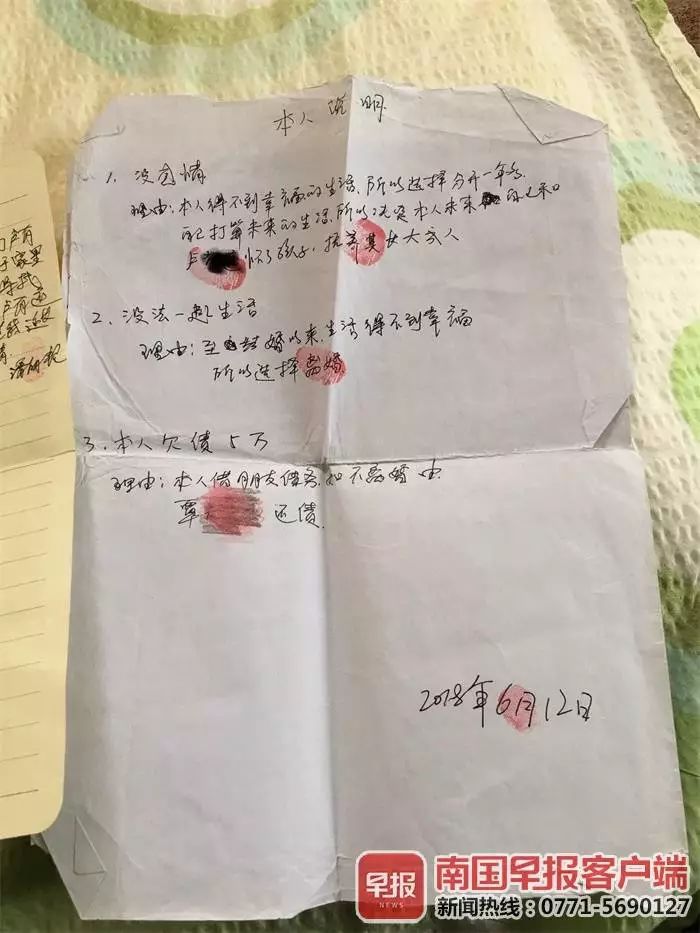 本人说明
1、没感情
理由:本人得不到幸福的生活,所以选择分开一年多
自己打算未来的生活,所以决定本人未来
卢 怀了孩子,抚养其女大成人
2、没法一起生活
理由:至 结婚以来,生活得不到幸福
所以选择离婚
3、本人欠债5万
理由:本人借朋友债务,如不离婚由
覃 还债.
2018年6月12日
早报
NEWS
南国早报客户端
新闻热线:0771-5690127